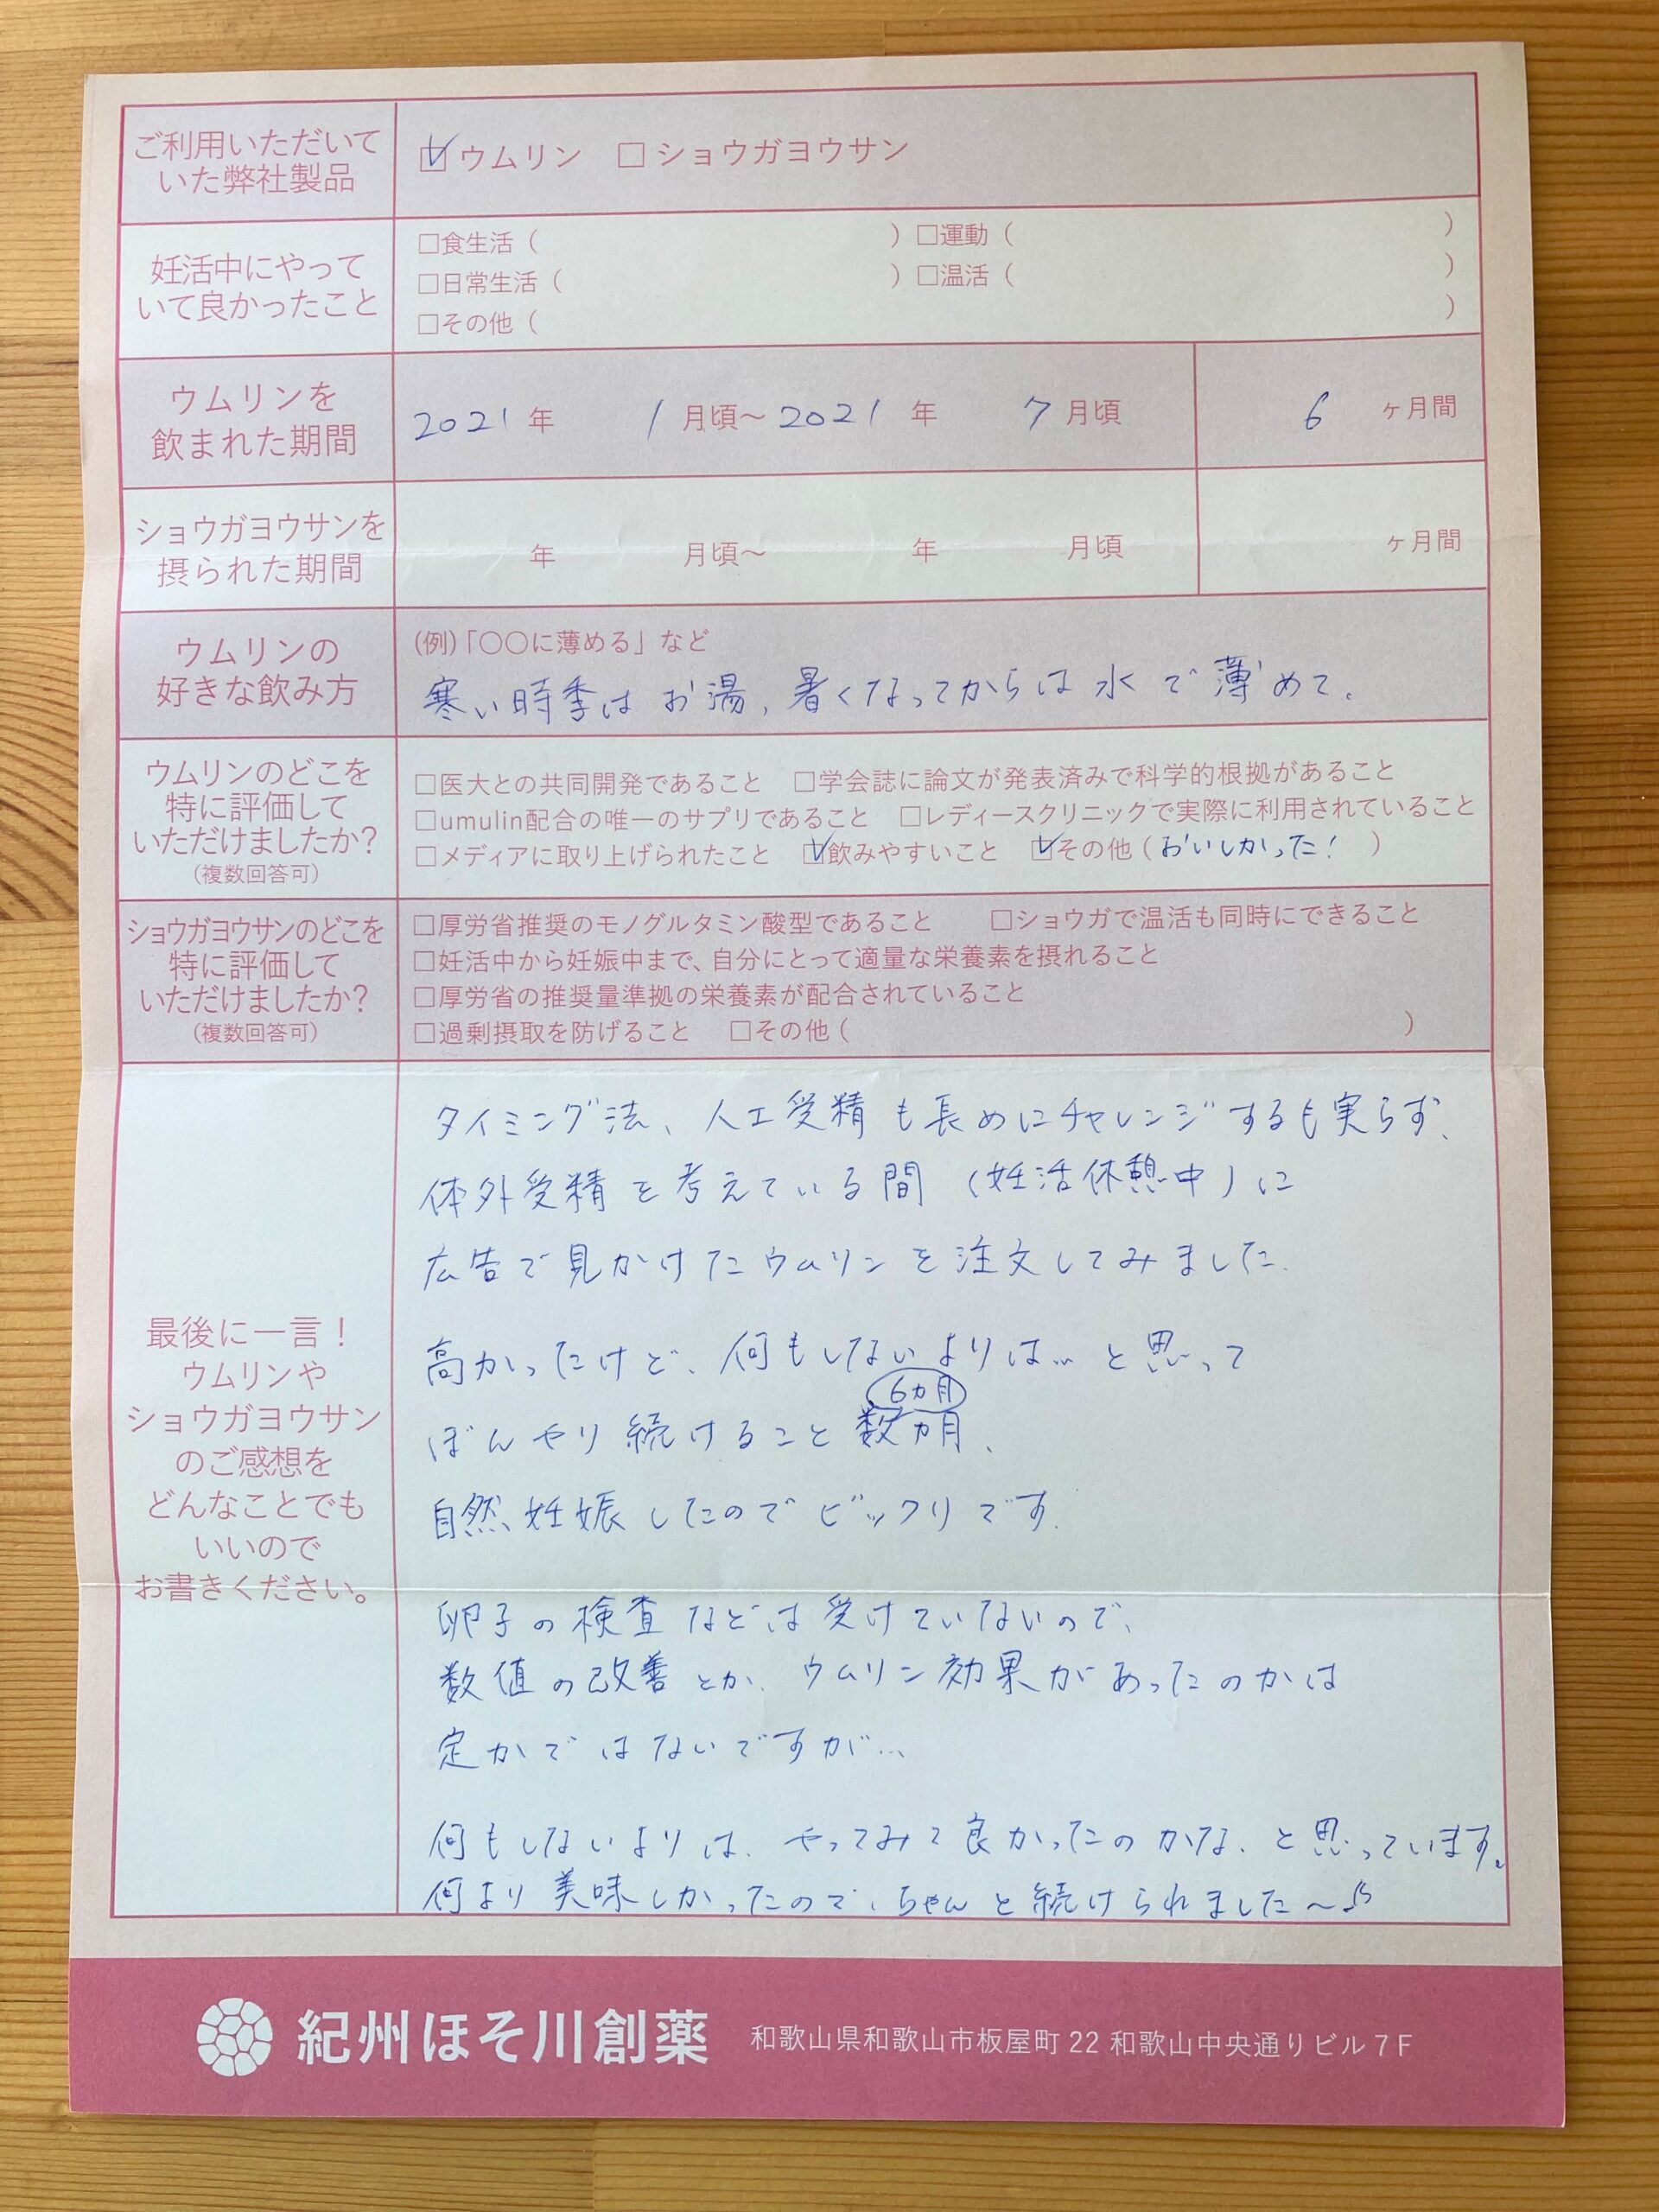 ご利用いただいて
いた弊社製品
☑ウムリン □ショウガヨウサン
妊活中にやって
いて良かったこと
□食生活( ) □運動( )
□日常生活( ) □温活( )
□その他( )
ウムリンを
飲まれた期間
2021年 1月頃〜2021年 7月頃 6ヶ月間
ショウガヨウサンを
摂られた期間
年 月頃〜 年 月頃 ヶ月間
ウムリンの
好きな飲み方
(例)「〇〇に薄める」など
寒い時季はお湯、暑くなってからは水で薄めて。
ウムリンのどこを
特に評価して
いただけましたか?
(複数回答可)
□医大との共同開発であること □学会誌に論文が発表済みで科学的根拠があること
□umulin配合の唯一のサプリであること □レディースクリニックで実際に利用されていること
□メディアに取り上げられたこと ☑飲みやすいこと ☑その他(おいしかった! )
ショウガヨウサンのどこを
特に評価して
いただけましたか?
(複数回答可)
□厚労省推奨のモノグルタミン酸型であること □ショウガで温活も同時にできること
□妊活中から妊娠中まで、自分にとって適量な栄養素を摂れること
□厚労省の推奨量準拠の栄養素が配合されていること
□過剰摂取を防げること □その他( )
最後に一言!
ウムリンや
ショウガヨウサン
のご感想を
どんなことでも
いいので
お書きください。
タイミング法、人工受精も長めにチャレンジするも実らず、
体外受精を考えている間(妊活休憩中)に
広告で見かけたウムリンを注文してみました。
高かったけど、何もしないよりは…と思って
6カ月
ぼんやり続けること数カ月、
自然妊娠したのでビックリです。
卵子の検査などは受けていないので、
数値の改善とか、ウムリン効果があったのかは
定かではないですが…
何もしないよりは、やってみて良かったのかな、と思っています。
何より美味しかったので、ちゃんと続けられました〜♫
紀州ほそ川創薬 和歌山県和歌山市板屋町22 和歌山中央通りビル7F